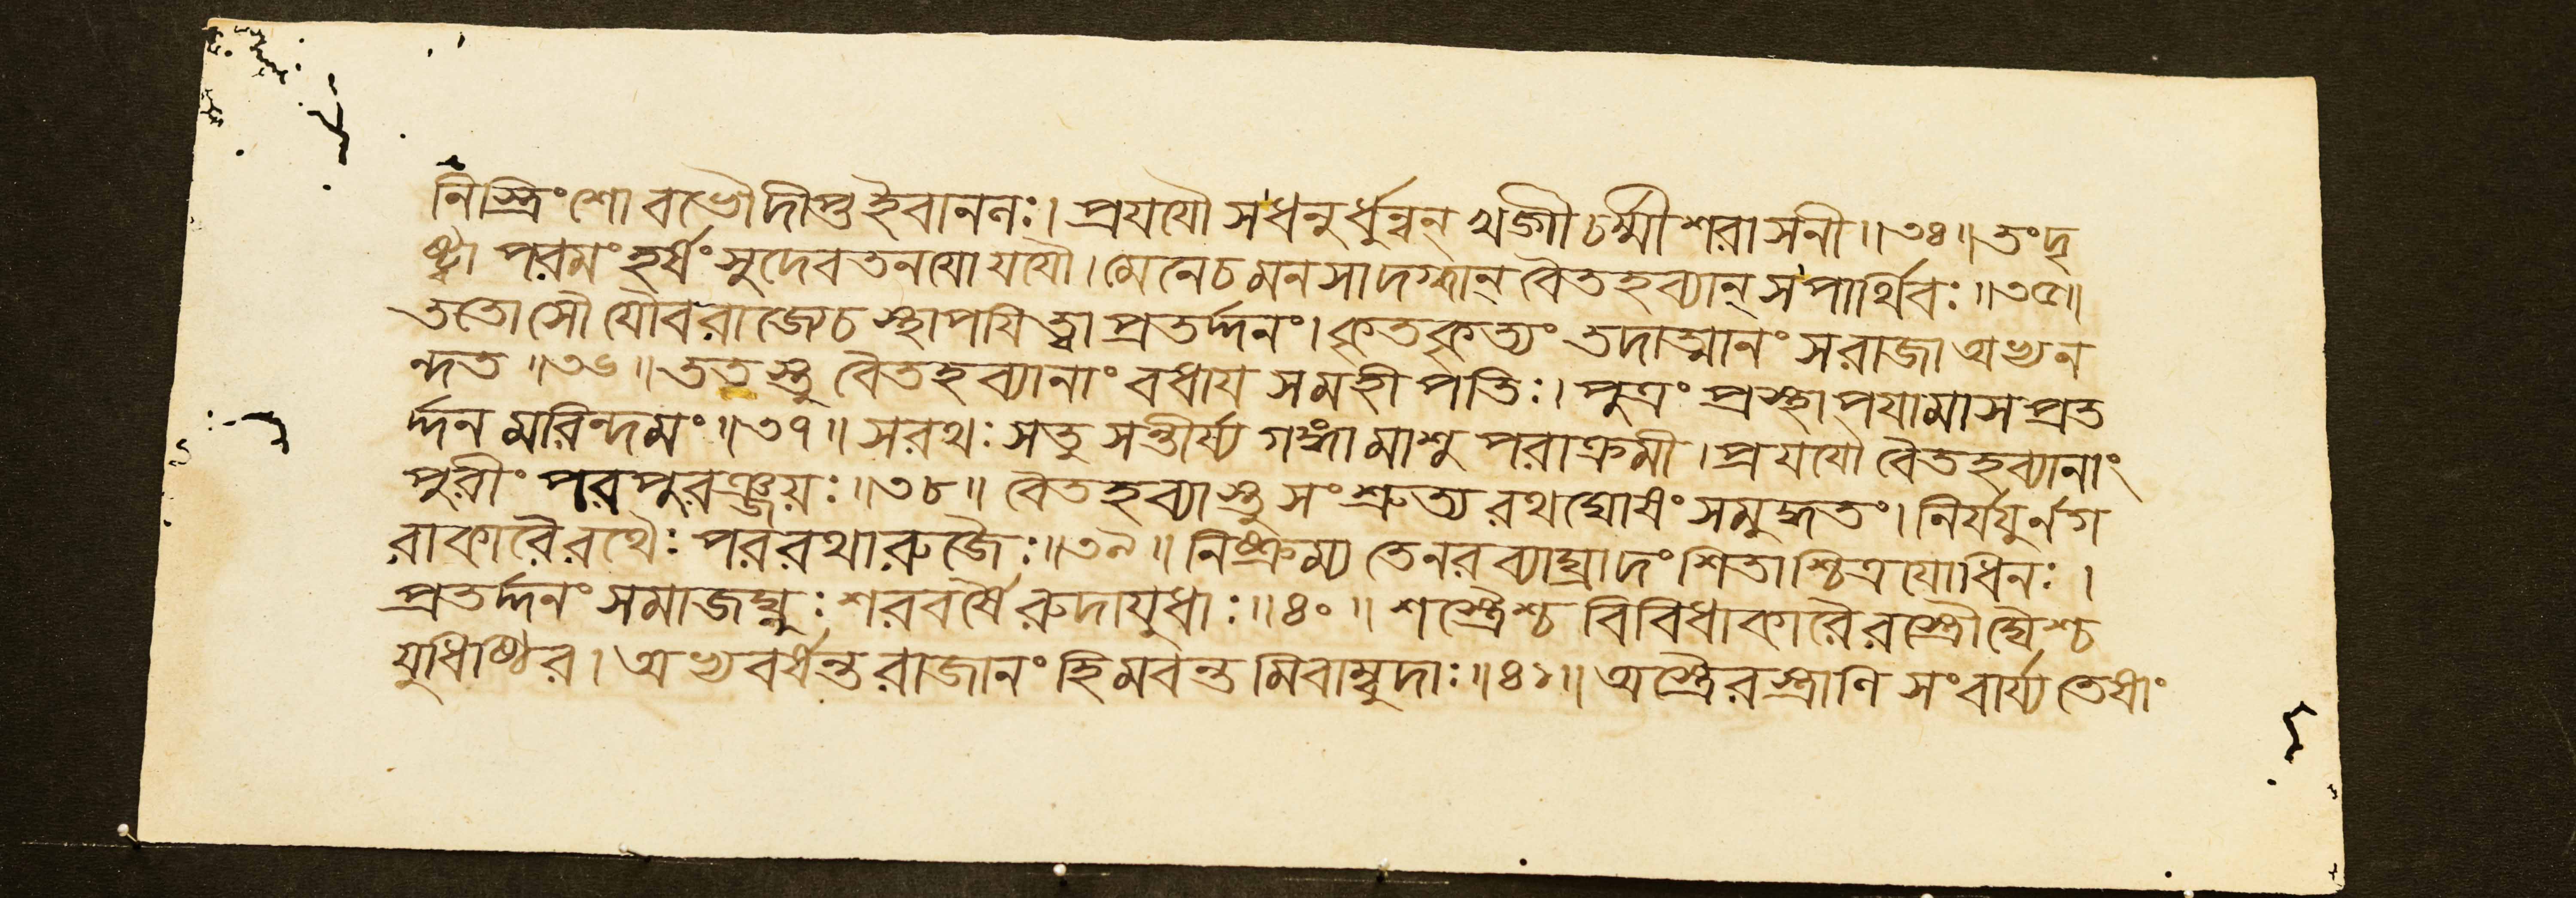 নিস্ত্রিংশো বভৌ দীপ্ত ইবাননঃ। প্রযযৌ স ধনুর্ধুন্বন্ খড্গী চর্ম্মী শরাসনী॥৩৪॥ তং দৃ
ষ্ট্বা পরমং হর্ষং সুদেবতনযো যযৌ। মেনে চ মনসা দগ্ধান্ বৈতহব্যান্ স পার্থিবঃ॥৩৫॥
ততোসৌ যৌবরাজ্যে চ স্থাপযিত্বা প্রতর্দ্দনং। কৃতকৃত্যং তদাত্মানং স রাজা অভ্যন
ন্দত॥৩৬॥ ততস্তু বৈতহব্যানাং বধায স মহীপতিঃ। পুত্রং প্রস্থাপযামাস প্রত
র্দ্দনমরিন্দমং॥৩৭॥ সরথঃ স তু সন্তীর্য্য গঙ্গামাশু পরাক্রমী। প্রযযৌ বৈতহব্যানাং
পুরীং পরপুরঞ্জয়ঃ॥৩৮॥ বৈতহব্যাস্তু সংশ্রুত্য রথঘোষং সমুদ্ধতং। নির্যযুর্নগ
রাকারৈ রথৈঃ পররথারুজৈঃ॥৩৯॥ নিষ্ক্রম্য তে নরব্যাঘ্রা দংশিতাশ্চিত্রযোধিনঃ।
প্রতর্দ্দনং সমাজঘ্নুঃ শরবর্ষৈরুদাযুধাঃ॥৪০॥ শস্ত্রৈশ্চ বিবিধাকারৈরস্ত্রৌঘৈশ্চ
যুধিষ্ঠির। অভ্যবর্ষন্ত রাজানং হিমবন্তমিবাম্বুদাঃ॥৪১॥ অস্ত্রৈরস্ত্রাণি সংবার্য্য তেষাং